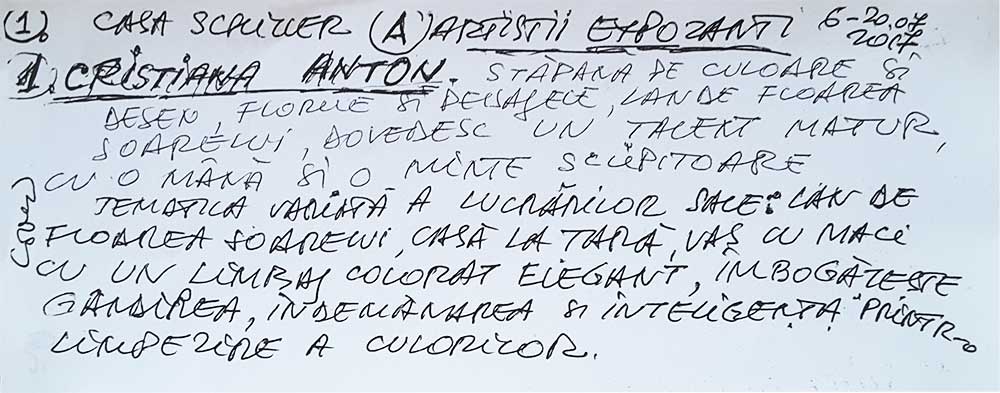 1. CASA SCHILLER (A) ARTISTII EXPOZANTI 6-20.07 2017
1. CRISTIANA ANTON. STĂPÂNA DE CULOARE SI
DESEN, FLORILE SI PEISAJELE, LAN DE FLOAREA
SOARELUI, DOVEDESC UN TALENT MATUR,
CU O MÂNĂ SI O MINTE SCLIPITOARE
TEMATICA VARIATĂ A LUCRĂRILOR SALE: LAN DE
FLOAREA SOARELUI, CASĂ LA TARĂ, VAS CU MACI
CU UN LIMBAJ COLORAT ELEGANT, ÎMBOGĂTESTE
GÂNDIREA, ÎNDEMÂNAREA SI INTELIGENTA PRINTR-O
LIMPEZIRE A CULORILOR.